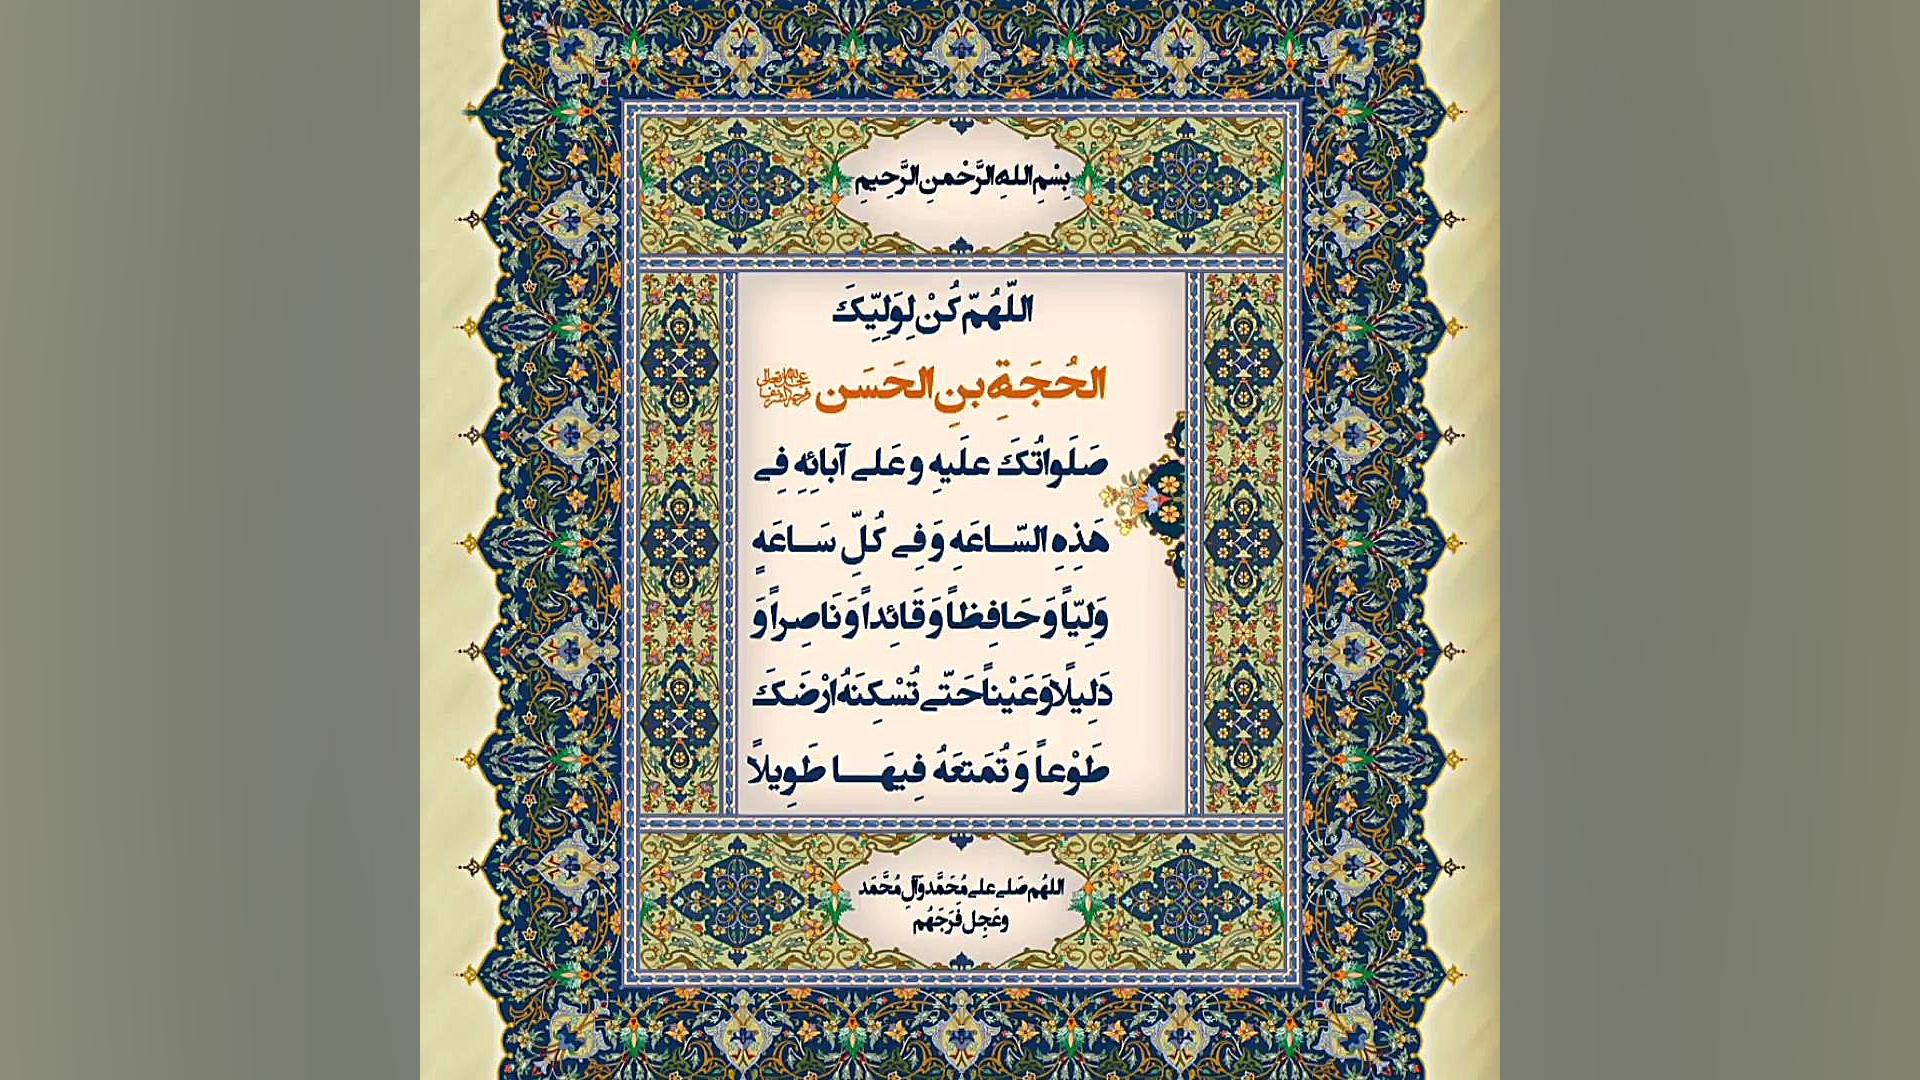 بِسْمِ اللهِ الرَّحْمنِ الرَّحِيمِ
اللّهُمّ كُنْ لِوَلِيِّكَ
الحُجَةِ بنِ الحَسَن عجل الله تعالى فرجه الشريف
صَلَواتُكَ علَيهِ وعَلے آبائِهِ فِے
هَذِهِ السّاعَهِ وَفِے كُلِّ سَاعَهٍ
وَلِيّاً وَحَافِظاً وَقَائِداً وَنَاصِراً وَ
دَلِيلًا وَعَيْناً حَتّے تُسْكِنَهُ ارْضَكَ
طَوْعاً وَ تُمَتعَهُ فِيهَا طَوِيلاً
اللهُم صَلے علے مُحَمَّد وَآلِ مُحَّمَد
وعَجِل فَرَجَهُم